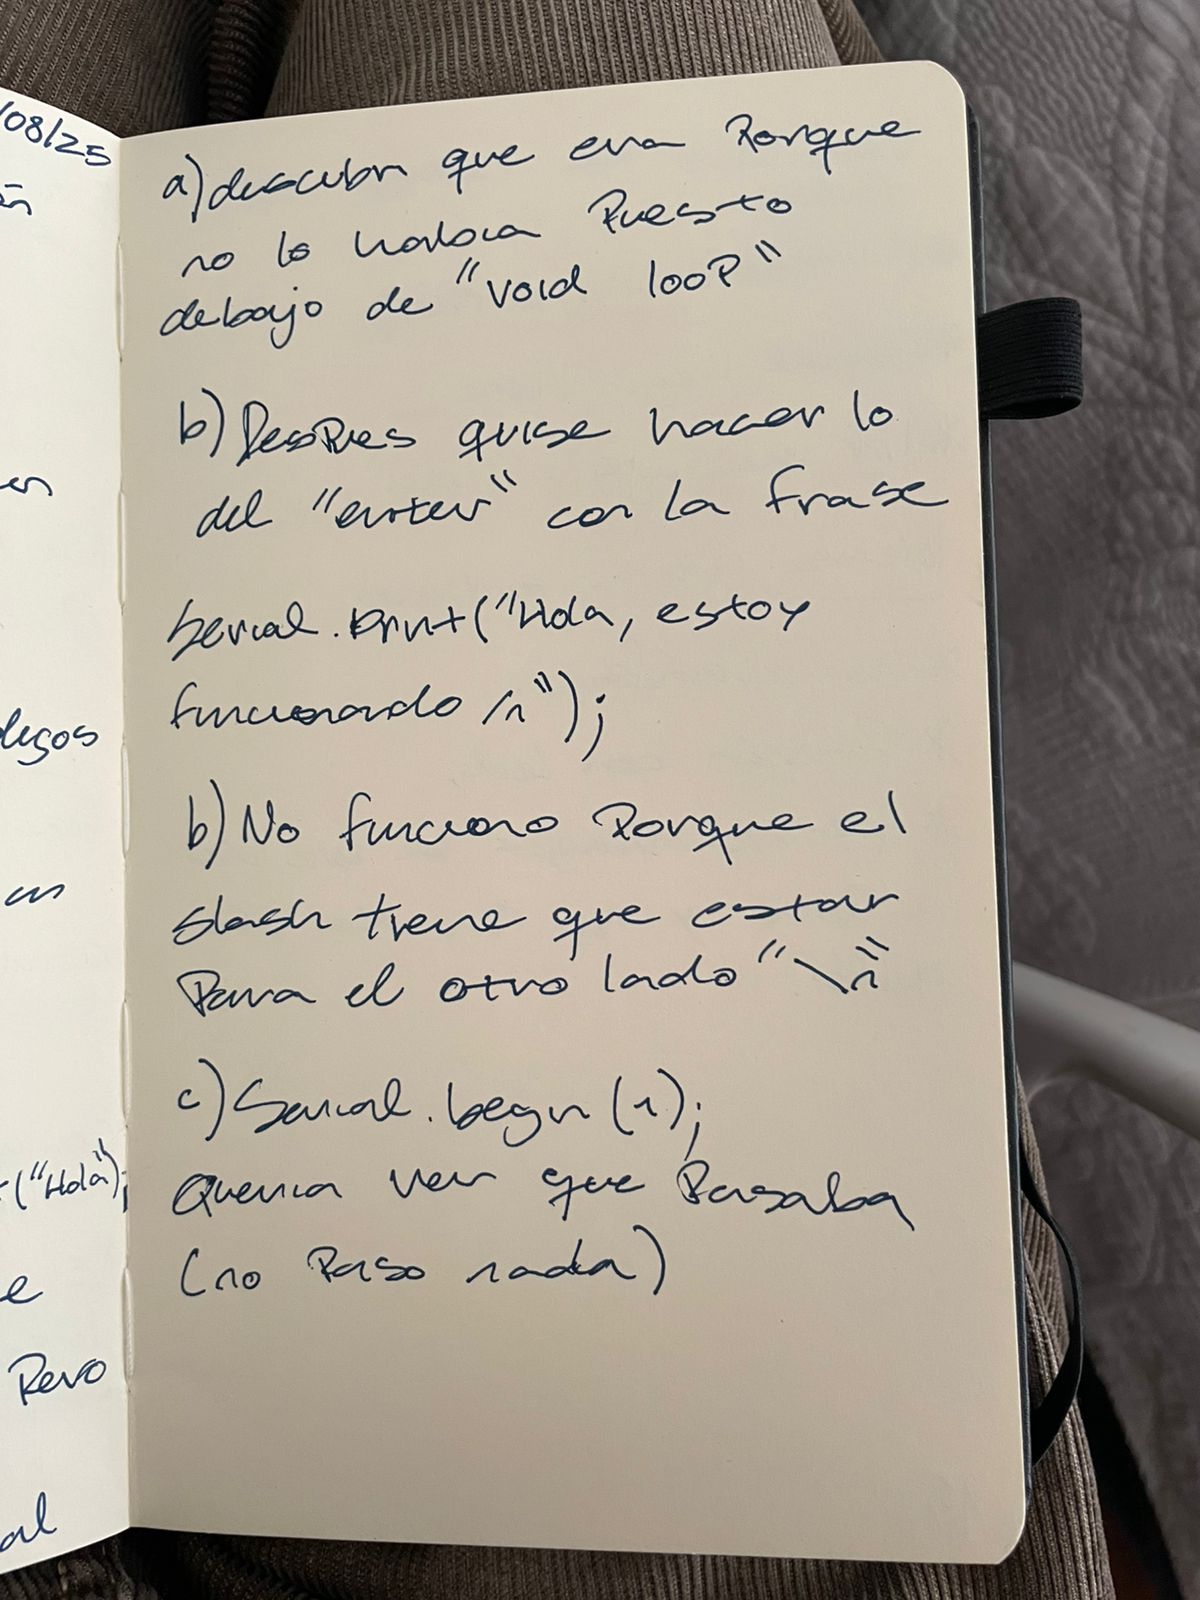 /08/25
en
desos
un
("Hola");
e
Pero
al
a) descubri que era Porque
no lo habia Puesto
debajo de "void looP"
b) DesPues quise hacer lo
del "enter" con la frase
Serial.print("Hola, estoy
funcionando /n");
b) No funciono Porque el
slash tiene que estar
Para el otro lado "\n"
c) Serial.begin(1);
Queria ver que Pasaba
(no Paso nada)